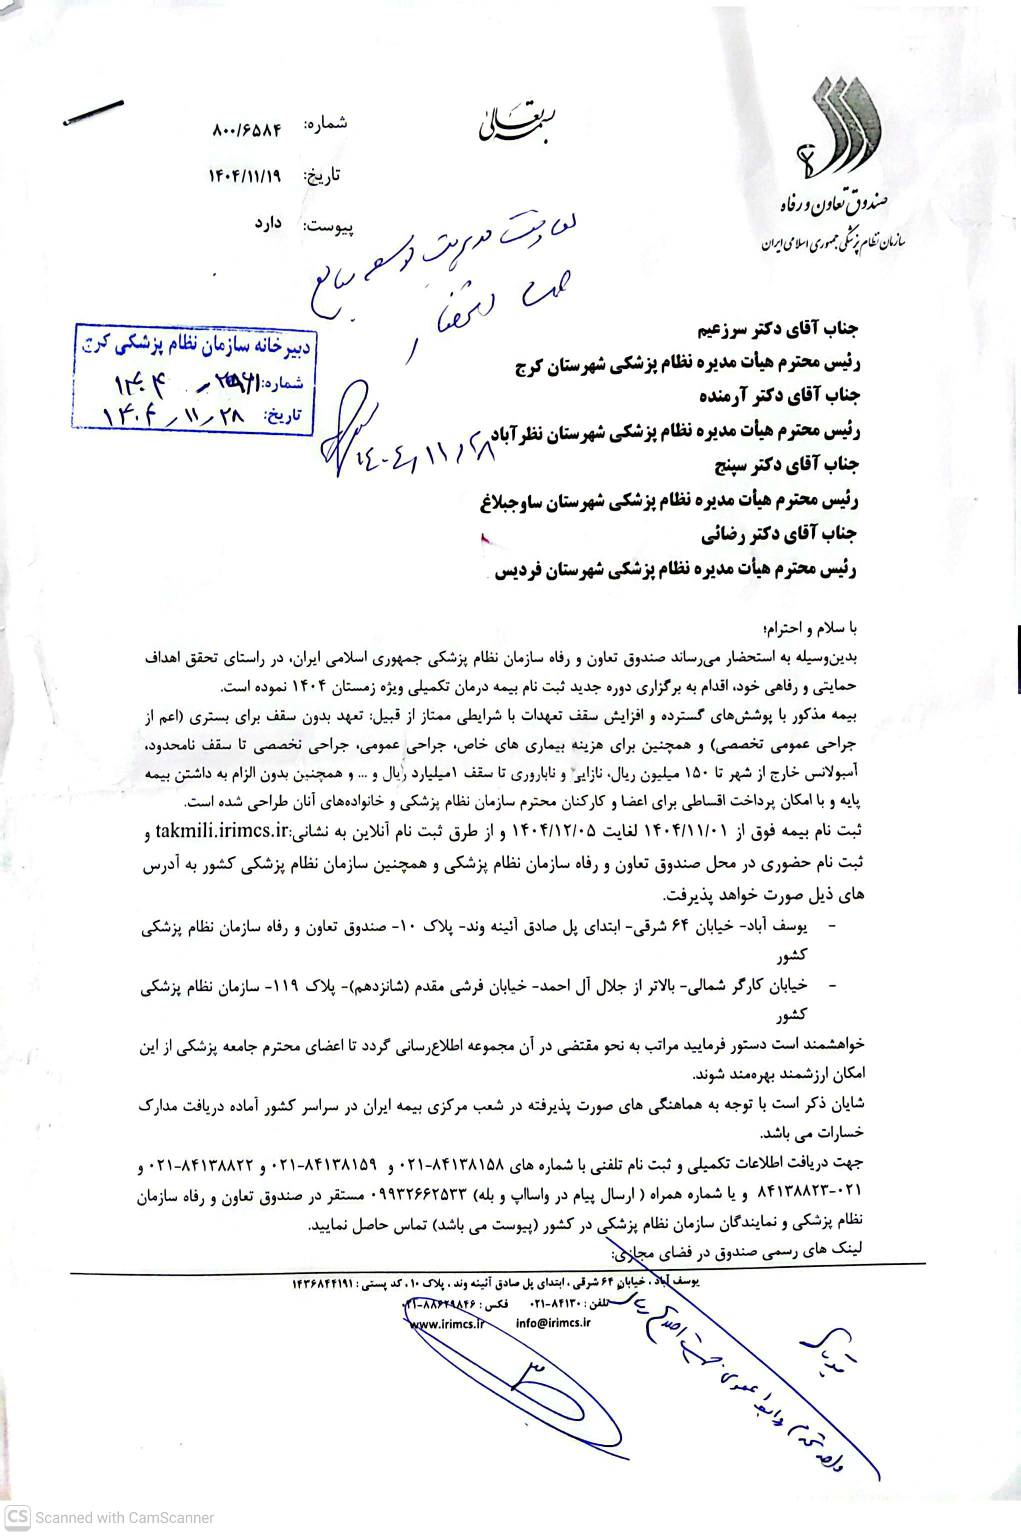 بسمه تعالی
صندوق تعاون و رفاه
سازمان نظام پزشکی جمهوری اسلامی ایران
شماره: ۸۰۰/۶۵۸۴
تاریخ: ۱۴۰۴/۱۱/۱۹
پیوست: دارد
معاونت مدیریت توسعه منابع
جهت استحضار
دبیرخانه سازمان نظام پزشکی کرج
شماره:
تاریخ: ۱۴۰۴/۱۱/۲۸
۱۴۰۴/۱۱/۲۸
جناب آقای دکتر سرزعیم
رئیس محترم هیأت مدیره نظام پزشکی شهرستان کرج
جناب آقای دکتر آرمنده
رئیس محترم هیأت مدیره نظام پزشکی شهرستان نظرآباد
جناب آقای دکتر سپنج
رئیس محترم هیأت مدیره نظام پزشکی شهرستان ساوجبلاغ
جناب آقای دکتر رضائی
رئیس محترم هیأت مدیره نظام پزشکی شهرستان فردیس
با سلام و احترام؛
بدین‌وسیله به استحضار می‌رساند صندوق تعاون و رفاه سازمان نظام پزشکی جمهوری اسلامی ایران، در راستای تحقق اهداف
حمایتی و رفاهی خود، اقدام به برگزاری دوره جدید ثبت نام بیمه درمان تکمیلی ویژه زمستان ۱۴۰۴ نموده است.
بیمه مذکور با پوشش‌های گسترده و افزایش سقف تعهدات با شرایطی ممتاز از قبیل: تعهد بدون سقف برای بستری (اعم از
جراحی عمومی تخصصی) و همچنین برای هزینه بیماری های خاص، جراحی عمومی، جراحی تخصصی تا سقف نامحدود،
آمبولانس خارج از شهر تا ۱۵۰ میلیون ریال، نازایی و ناباروری تا سقف ۱میلیارد ریال و ... و همچنین بدون الزام به داشتن بیمه
پایه و با امکان پرداخت اقساطی برای اعضا و کارکنان محترم سازمان نظام پزشکی و خانواده‌های آنان طراحی شده است.
ثبت نام بیمه فوق از ۱۴۰۴/۱۱/۰۱ لغایت ۱۴۰۴/۱۲/۰۵ و از طرق ثبت نام آنلاین به نشانی:takmili.irimcs.ir و
ثبت نام حضوری در محل صندوق تعاون و رفاه سازمان نظام پزشکی و همچنین سازمان نظام پزشکی کشور به آدرس
های ذیل صورت خواهد پذیرفت.
- یوسف آباد- خیابان ۶۴ شرقی- ابتدای پل صادق آئینه وند- پلاک ۱۰- صندوق تعاون و رفاه سازمان نظام پزشکی
کشور
- خیابان کارگر شمالی- بالاتر از جلال آل احمد- خیابان فرشی مقدم (شانزدهم)- پلاک ۱۱۹- سازمان نظام پزشکی
کشور
خواهشمند است دستور فرمایید مراتب به نحو مقتضی در آن مجموعه اطلاع‌رسانی گردد تا اعضای محترم جامعه پزشکی از این
امکان ارزشمند بهره‌مند شوند.
شایان ذکر است با توجه به هماهنگی های صورت پذیرفته در شعب مرکزی بیمه ایران در سراسر کشور آماده دریافت مدارک
خسارات می باشد.
جهت دریافت اطلاعات تکمیلی و ثبت نام تلفنی با شماره های ۸۴۱۳۸۱۵۸-۰۲۱ و ۸۴۱۳۸۱۵۹-۰۲۱ و ۸۴۱۳۸۸۲۲-۰۲۱ و
۸۴۱۳۸۸۲۳-۰۲۱ و یا شماره همراه ( ارسال پیام در واساپ و بله) ۰۹۹۳۲۶۶۲۵۳۳ مستقر در صندوق تعاون و رفاه سازمان
نظام پزشکی و نمایندگان سازمان نظام پزشکی در کشور (پیوست می باشد) تماس حاصل نمایید.
لینک های رسمی صندوق در فضای مجازی:
یوسف آباد ، خیابان ۶۴ شرقی ، ابتدای پل صادق آئینه وند ، پلاک ۱۰ ، کد پستی : ۱۴۳۶۸۴۴۱۹۱
تلفن : ۸۴۱۳۰-۰۲۱ فکس : ۸۸۶۲۹۸۴۶-۰۲۱
www.irimcs.ir info@irimcs.ir
واحد محترم روابط عمومی جهت اطلاع رسانی
CS Scanned with CamScanner